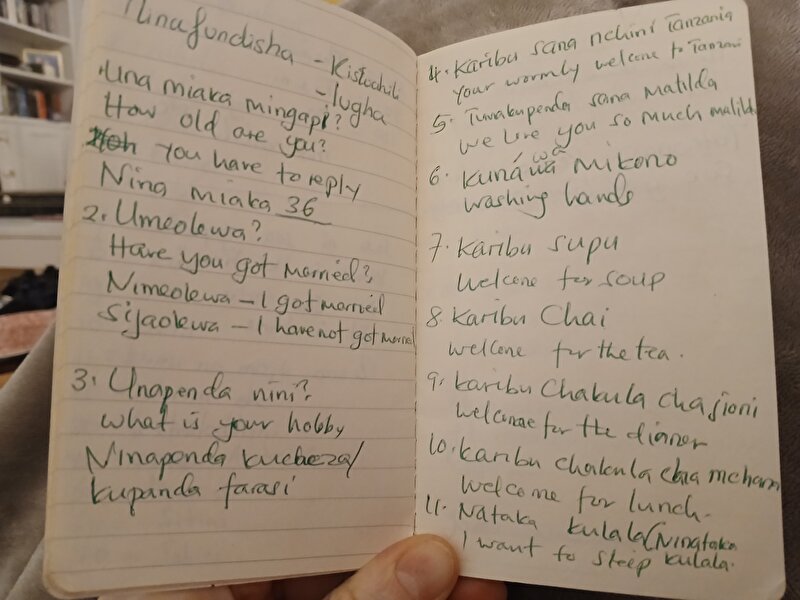 Unafundisha - Kiswahili
- lugha
1. Una miaka mingapi?
How old are you?
You have to reply
Nina miaka 36
2. Umeolewa?
Have you got married?
Nimeolewa – I got married
Sijaolewa – I have not got married
3. Unapenda nini?
What is your hobby
Ninapenda kucheza/
kupanda farasi
4. Karibu sana nchini Tanzania
Your wormly welcome to Tanzani
5. Tunakupenda sana Matilda
We love you so much Matilda
6. Kunáwa wa mikono
washing hands
7. Karibu supu
Welcone for soup
8. Karibu Chai
Wellcone for the tea.
9. Karibu Chakula cha jioni
Welcome for the dinner
10. Karibu chakula cha mchana
Welcome for lunch.
11. Nataka kulala (Ninataka
I want to sleep kulala.